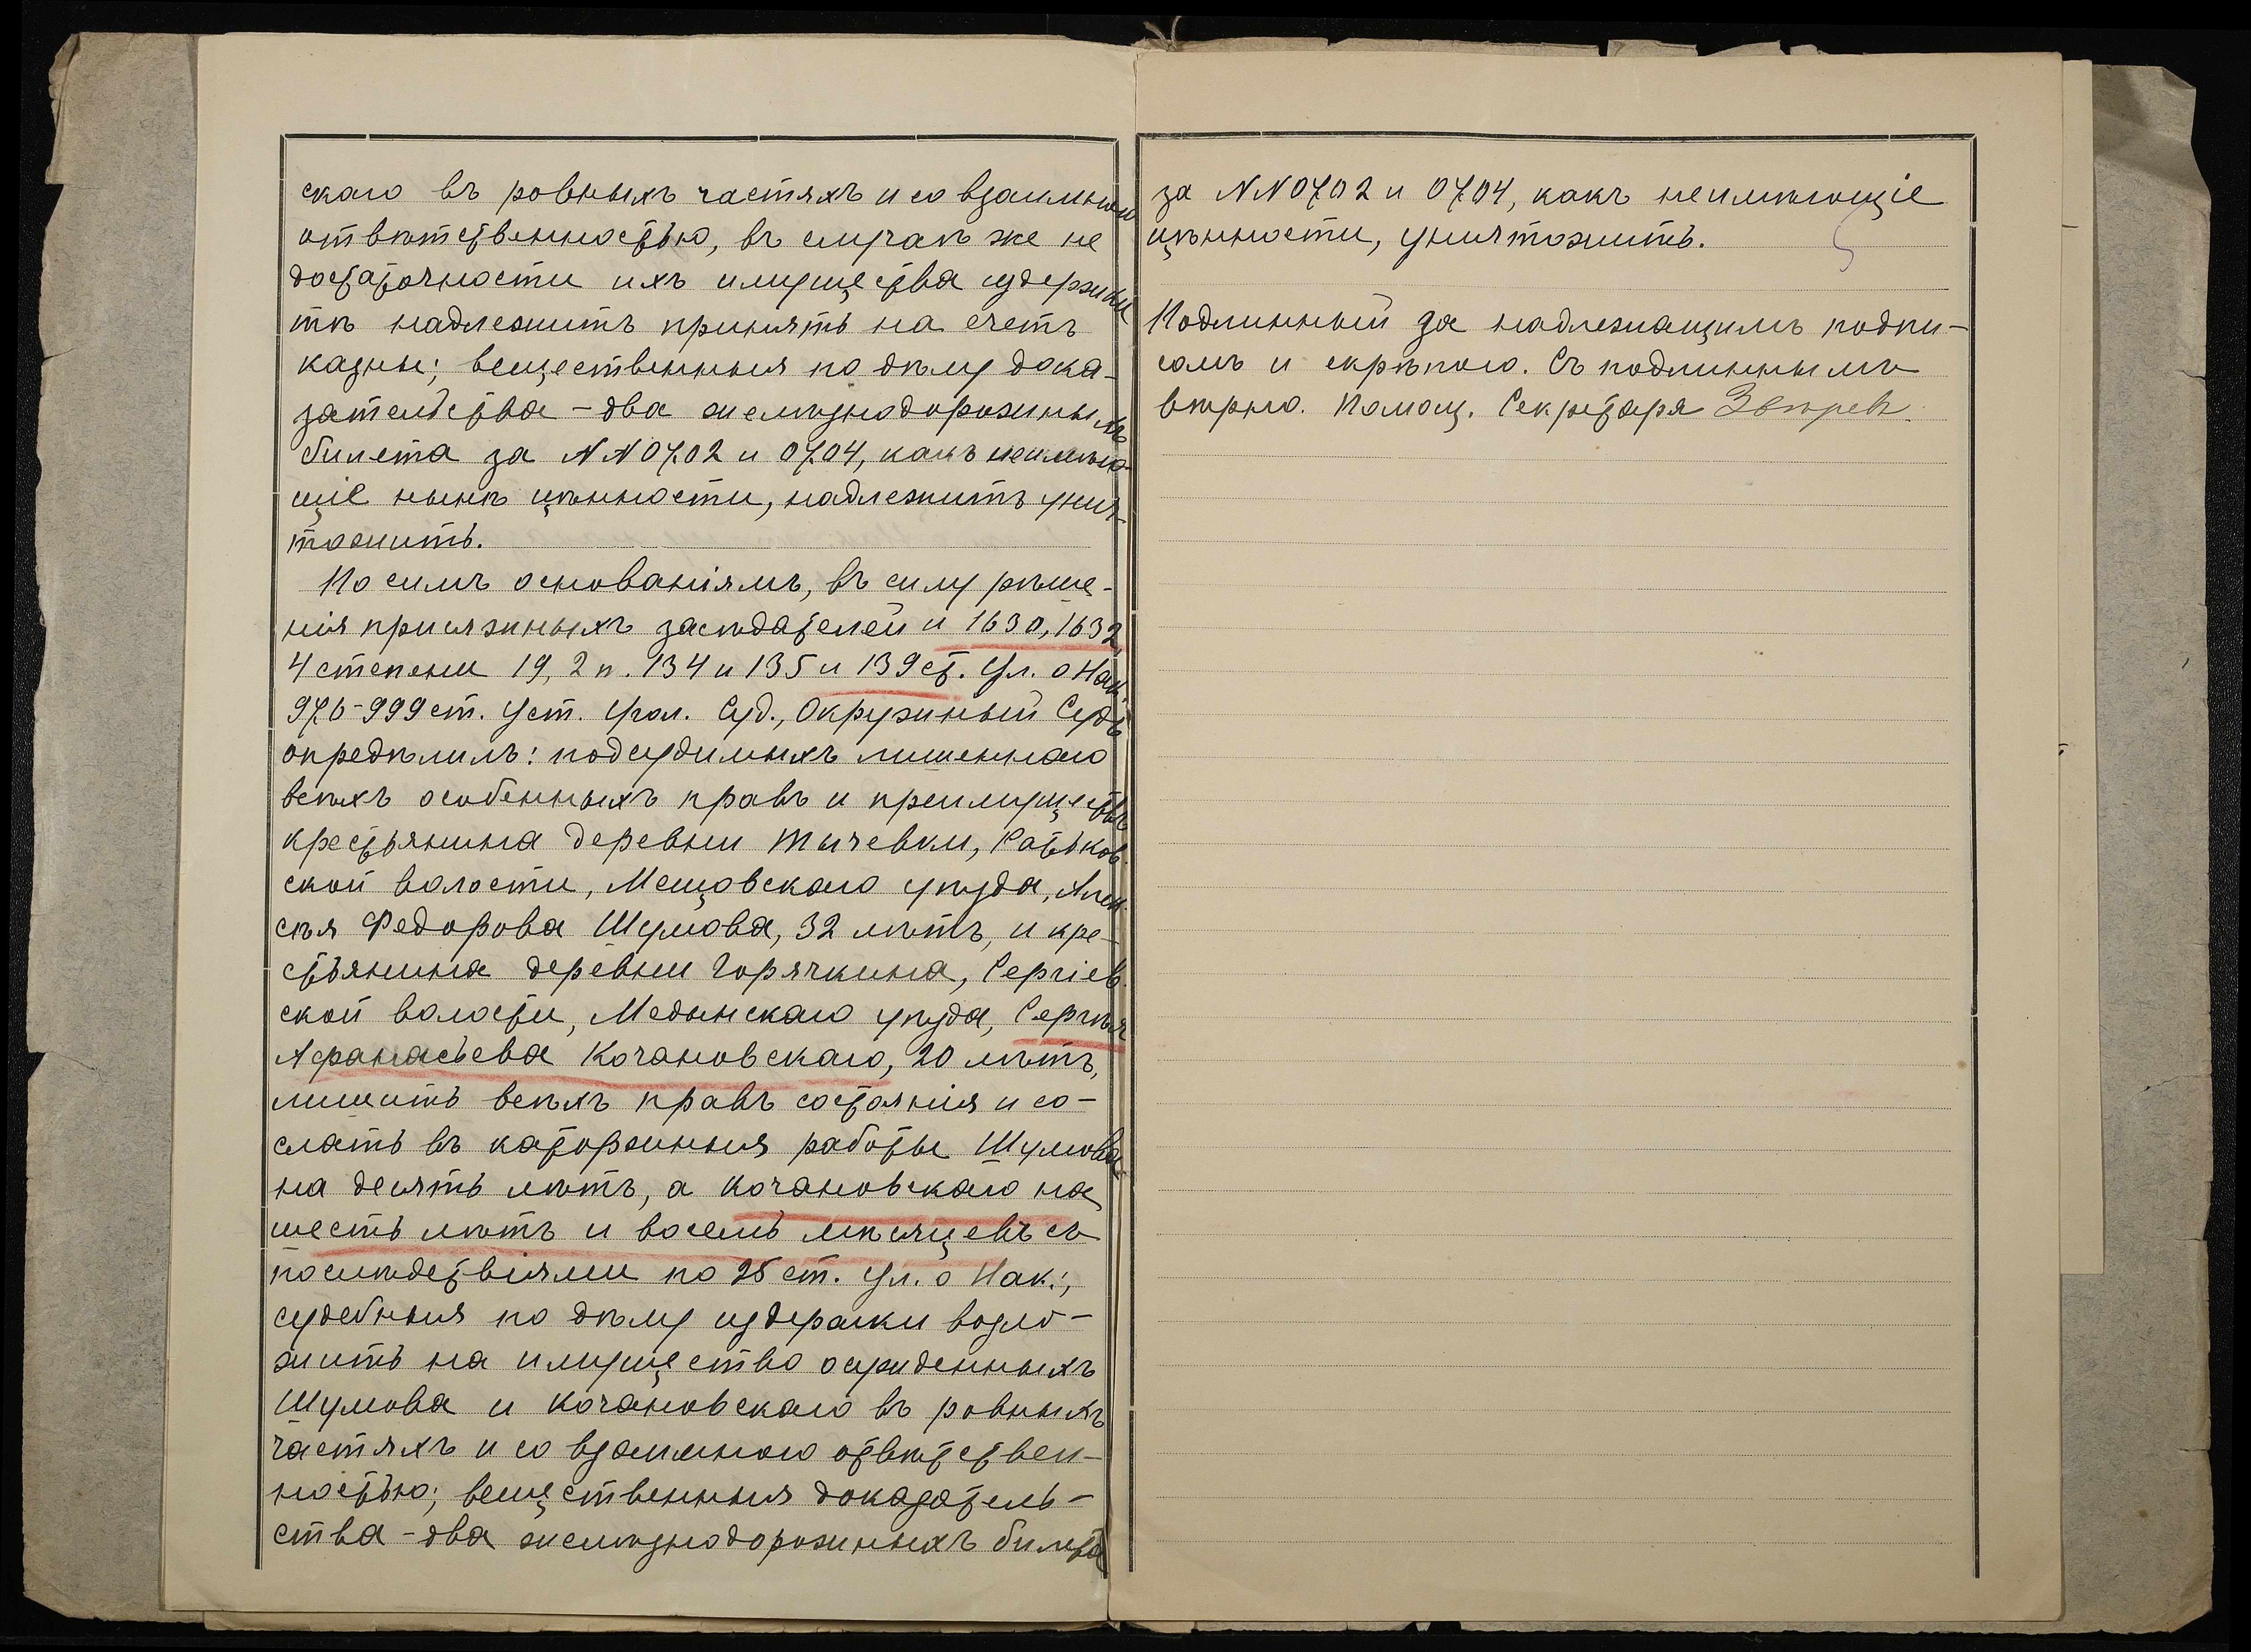 скаго въ ровныхъ частяхъ и со взаимною
отвѣтственностью, въ случаѣ же не
достаточности ихъ имущества издержки
тѣ надлежитъ принять на счетъ
казны; вещественныя по дѣлу дока-
зательства - два желѣзнодорожныхъ
билета за NN 0702 и 0704, какъ неимѣю-
щіе нынѣ цѣнности, надлежитъ унич-
тожить.
По симъ основаніямъ, въ силу рѣше-
нія присяжныхъ засѣдателей и 1630, 1632,
4 степени 19, 2 п. 134 и 135 и 139 ст. Ул. о Нак.
976-999 ст. Уст. Угол. Суд., Окружный Судъ
опредѣлилъ: подсудимыхъ лишеннаго
всѣхъ особенныхъ правъ и преимуществъ
крестьянина деревни Тычевки, Сатьков-
ской волости, Мещовскаго уѣзда, Алек-
сѣя Федорова Шумова, 32 лѣтъ, и кре-
стьянина деревни Горячкина, Сергіев-
ской волости, Медынскаго уѣзда, Сергѣя
Афанасьева Кочановскаго, 20 лѣтъ,
лишить всѣхъ правъ состоянія и со-
слать въ каторжныя работы Шумова
на десять лѣтъ, а Кочановскаго на
шесть лѣтъ и восемь мѣсяцевъ съ
послѣдствіями по 25 ст. Ул. о Нак.;
судебныя по дѣлу издержки возло-
жить на имущество осужденныхъ
Шумова и Кочановскаго въ ровныхъ
частяхъ и со взаимною отвѣтствен-
ностью; вещественныя доказатель-
ства - два желѣзнодорожныхъ билета
за NN 0702 и 0704, какъ неимѣющіе
цѣнности, уничтожить.
Подлинный за надлежащимъ подпи-
сомъ и скрѣпою. Съ подлиннымъ
вѣрно. Помощ. Секретаря Звѣревъ